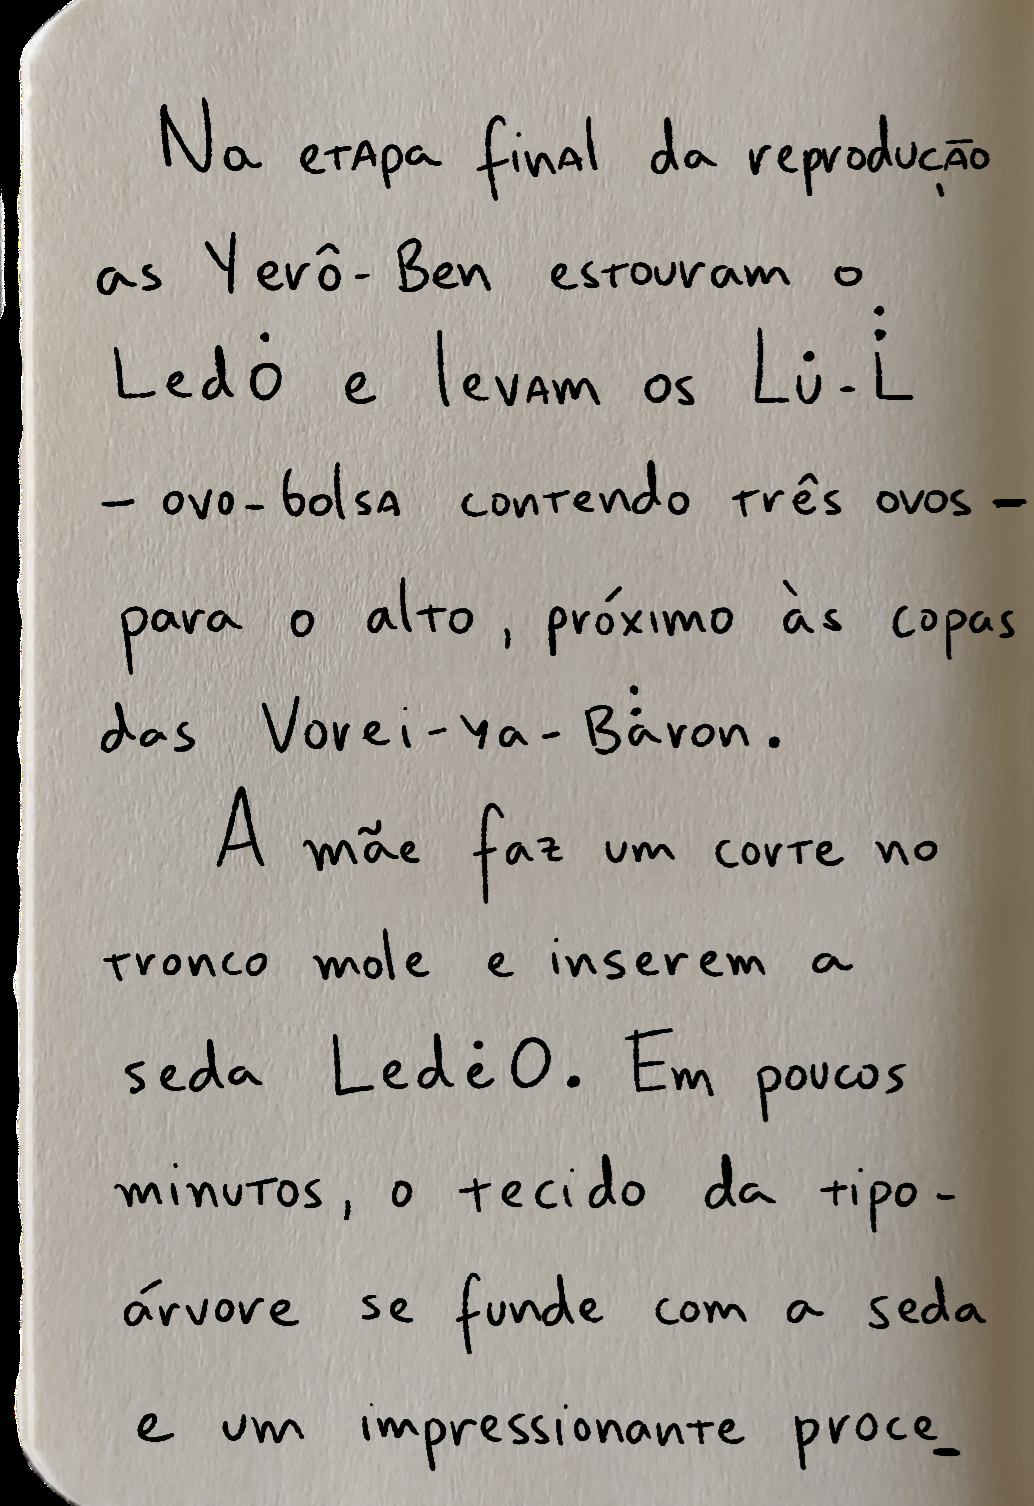 Na etapa final da reprodução
as Yerô-Ben estouram o
Ledȯ e levam os Lu̇-L̈
- ovo-bolsa contendo três ovos -
para o alto, próximo às copas
das Vorei-ya-Bȧ̇ron.
A mãe faz um corte no
tronco mole e inserem a
seda LedėO. Em poucos
minutos, o tecido da tipo-
árvore se funde com a seda
e um impressionante proce_